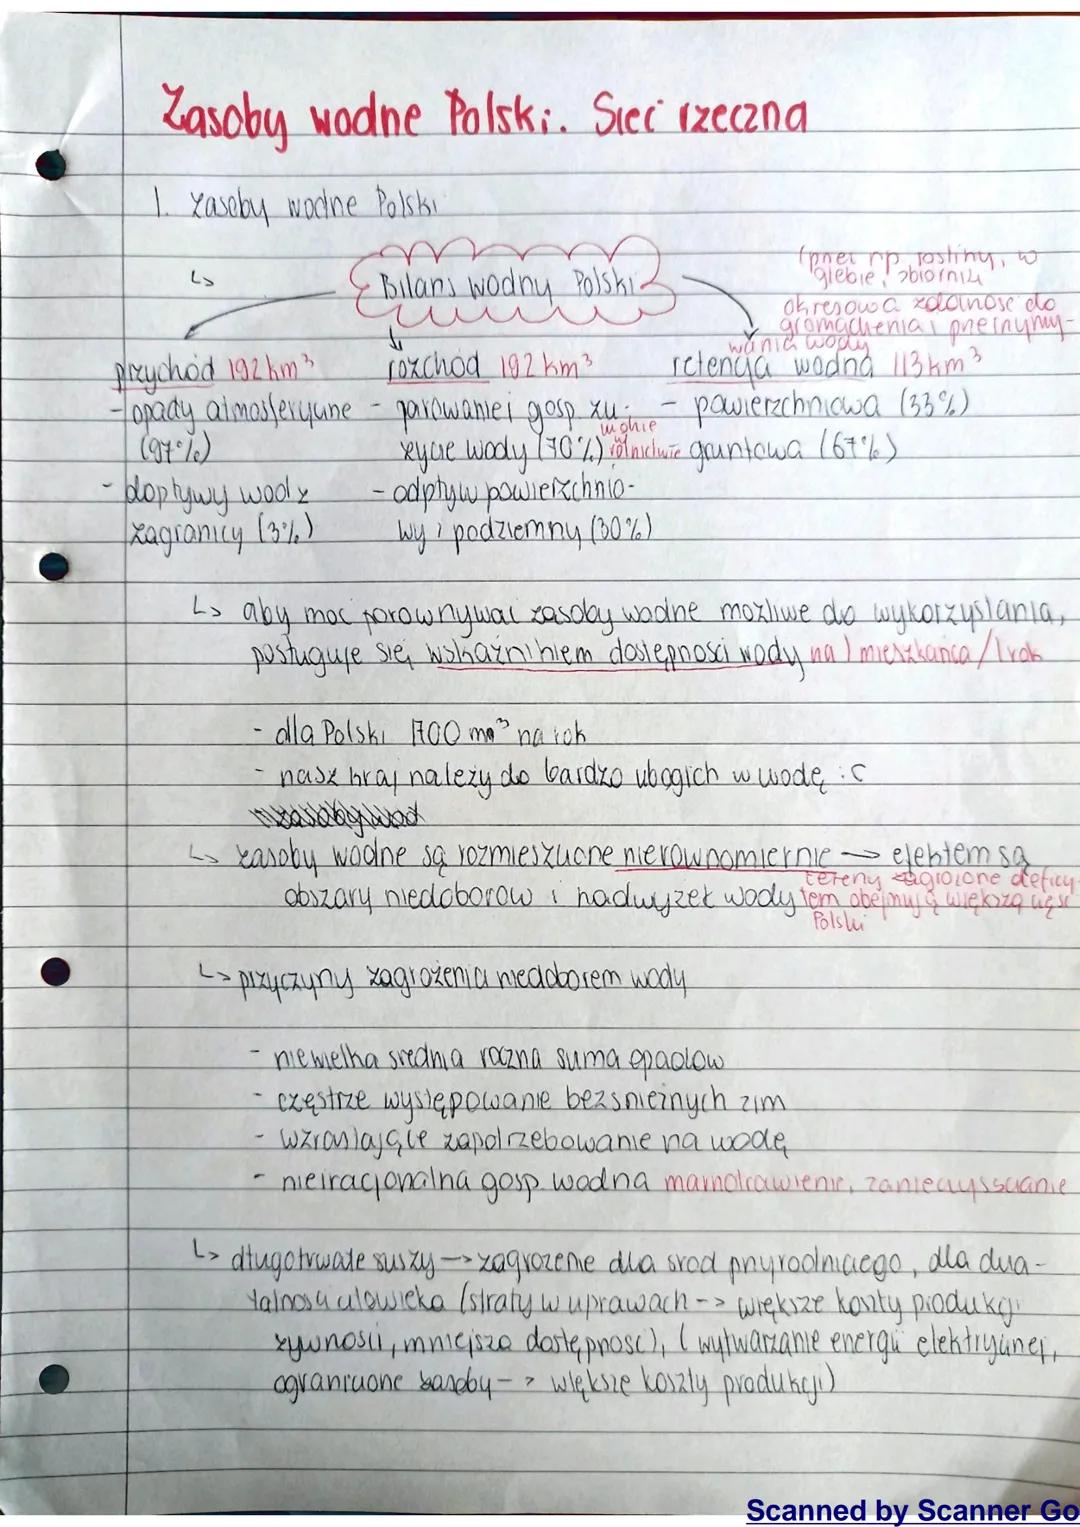 Zasoby wodne Polski. Sieć rzeczna
1. Zasoby wodne Polski
↳ Bilans wodny Polski
(przez np. rośliny, w
glebie, zbiorniki
okresowa zdolność do
gromadzenia i przetrzymy-
wania wody
przychód 192 km³
- opady atmosferyczne
(97%)
- dopływy wod z
zagranicy (3%)
rozchód 192 km³
- parowanie i gosp. zu-
życie wody (70%) w rolnictwie
- odpływ powierzchnio-
wy i podziemny (30%)
retencja wodna 113 km³
- powierzchniowa (33%)
gruntowa (67%)
↳ aby moc porownywac zasoby wodne możliwe do wykorzystania,
posługuje się wskaźnikiem dostępności wody na 1 mieszkańca / 1 rok
- dla Polski 1700 m³ na rok
- nasz kraj należy do bardzo ubogich w wodę :c
↳ zasoby wodne są rozmieszczone nierównomiernie → efektem są
obszary niedoborow i nadwyżek wody
tereny zagrożone deficy-
tem obejmują większą część
Polski
↳ przyczyny zagrożenia niedoborem wody
- niewielka srednia roczna suma opadow
- częstrze występowanie bezsnieżnych zim
- wzrastające zapotrzebowanie na wodę
- nieiracjonalna gosp. wodna marnotrawienie, zanieczysszczanie
↳ długotrwałe suszy → zagrożenie dla srod przyrodniczego, dla dzia-
łalnosci człowieka (straty w uprawach -> większe koszty produkcji
żywnosci, mniejsza dostępnosc), (wytwarzanie energii elektrycznej,
ograniczone zasoby -> większe koszty produkcji)
Scanned by Scanner Go